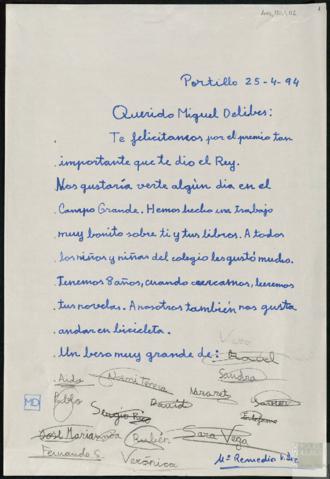 Portillo 25-4-94
Querido Miguel Delibes:
Te felicitamos por el premio tan
importante que te dio el Rey.
Nos gustaría verte algún día en el
Campo Grande. Hemos hecho un trabajo
muy bonito sobre ti y tus libros. A todos
los niños y niñas del colegio les gustó mucho.
Tenemos 8 años, cuando crezcamos, leeremos
tus novelas. A nosotros también nos gusta
andar en bicicleta.
Un beso muy grande de:
Aida Noemí Teresa Nazaret Sandra
Pablo Sergio David
MD
José María Rubén Sara Vega
Fernando S. Verónica
Mª Remedio